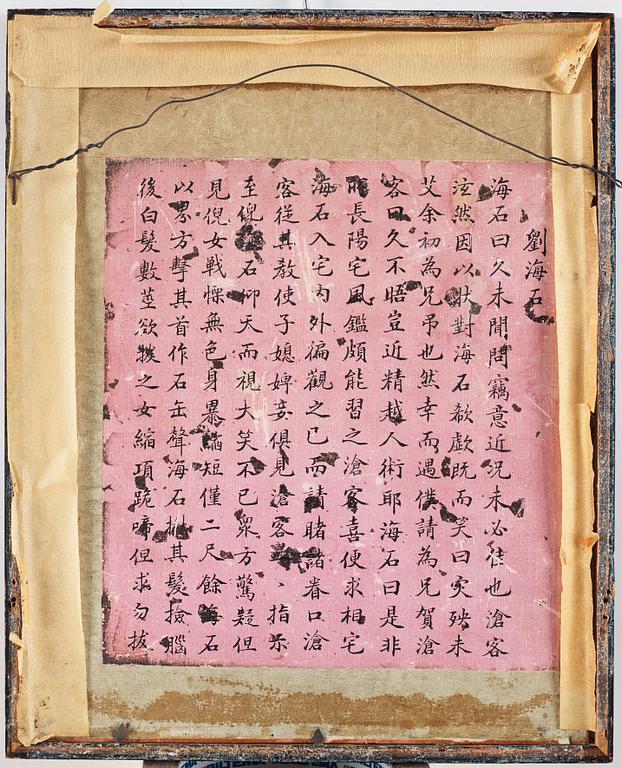 劉海石
海石曰久未聞問竊意近況未必佳也滄客
泫然因以狀對海石欷歔既而笑曰災殃未
艾余初為兄弔也然幸而遇僕請為兄賀滄
客曰久不晤豈近精越人術耶海石曰是非
所長陽宅風鑑頗能習之滄客喜便求相宅
海石入宅內外徧觀之已而請睹諸眷口滄
客從其教使子媳婢妾俱見滄客、指示
至倪海石仰天而視大笑不已眾方驚疑但
見倪女戰慄無色身暴縮短僅二尺餘海石
以界方擊其首作石缶聲海石揪其髮撿腦
後白髮數莖欲拔之女縮項跪啼但求勿拔